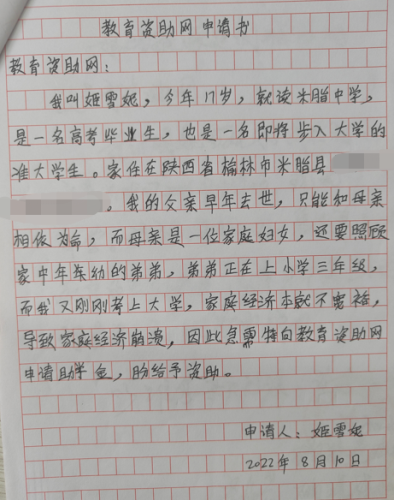 教育资助网申请书
教育资助网：
我叫姬雪妮，今年17岁，就读米脂中学，
是一名高考毕业生，也是一名即将步入大学的
准大学生。家住在陕西省榆林市米脂县
。我的父亲早年去世，只能和母亲
相依为命，而母亲是一位家庭妇女，还要照顾
家中年幼的弟弟，弟弟正在上小学三年级，
而我又刚刚考上大学，家庭经济本就不宽裕，
导致家庭经济崩溃，因此急需特向教育资助网
申请助学金，盼给予资助。
申请人：姬雪妮
2022年8月10日